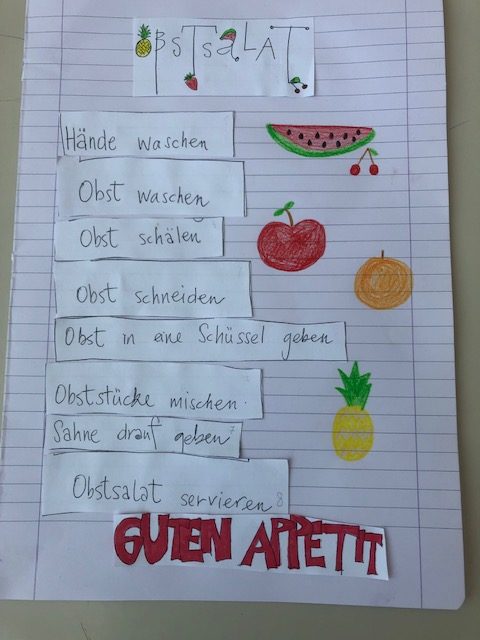 OBSTSALAT
Hände waschen
Obst waschen
Obst schälen
Obst schneiden
Obst in eine Schüssel geben
Obststücke mischen.
Sahne drauf geben 7
Obstsalat servieren 8
GUTEN APPETIT